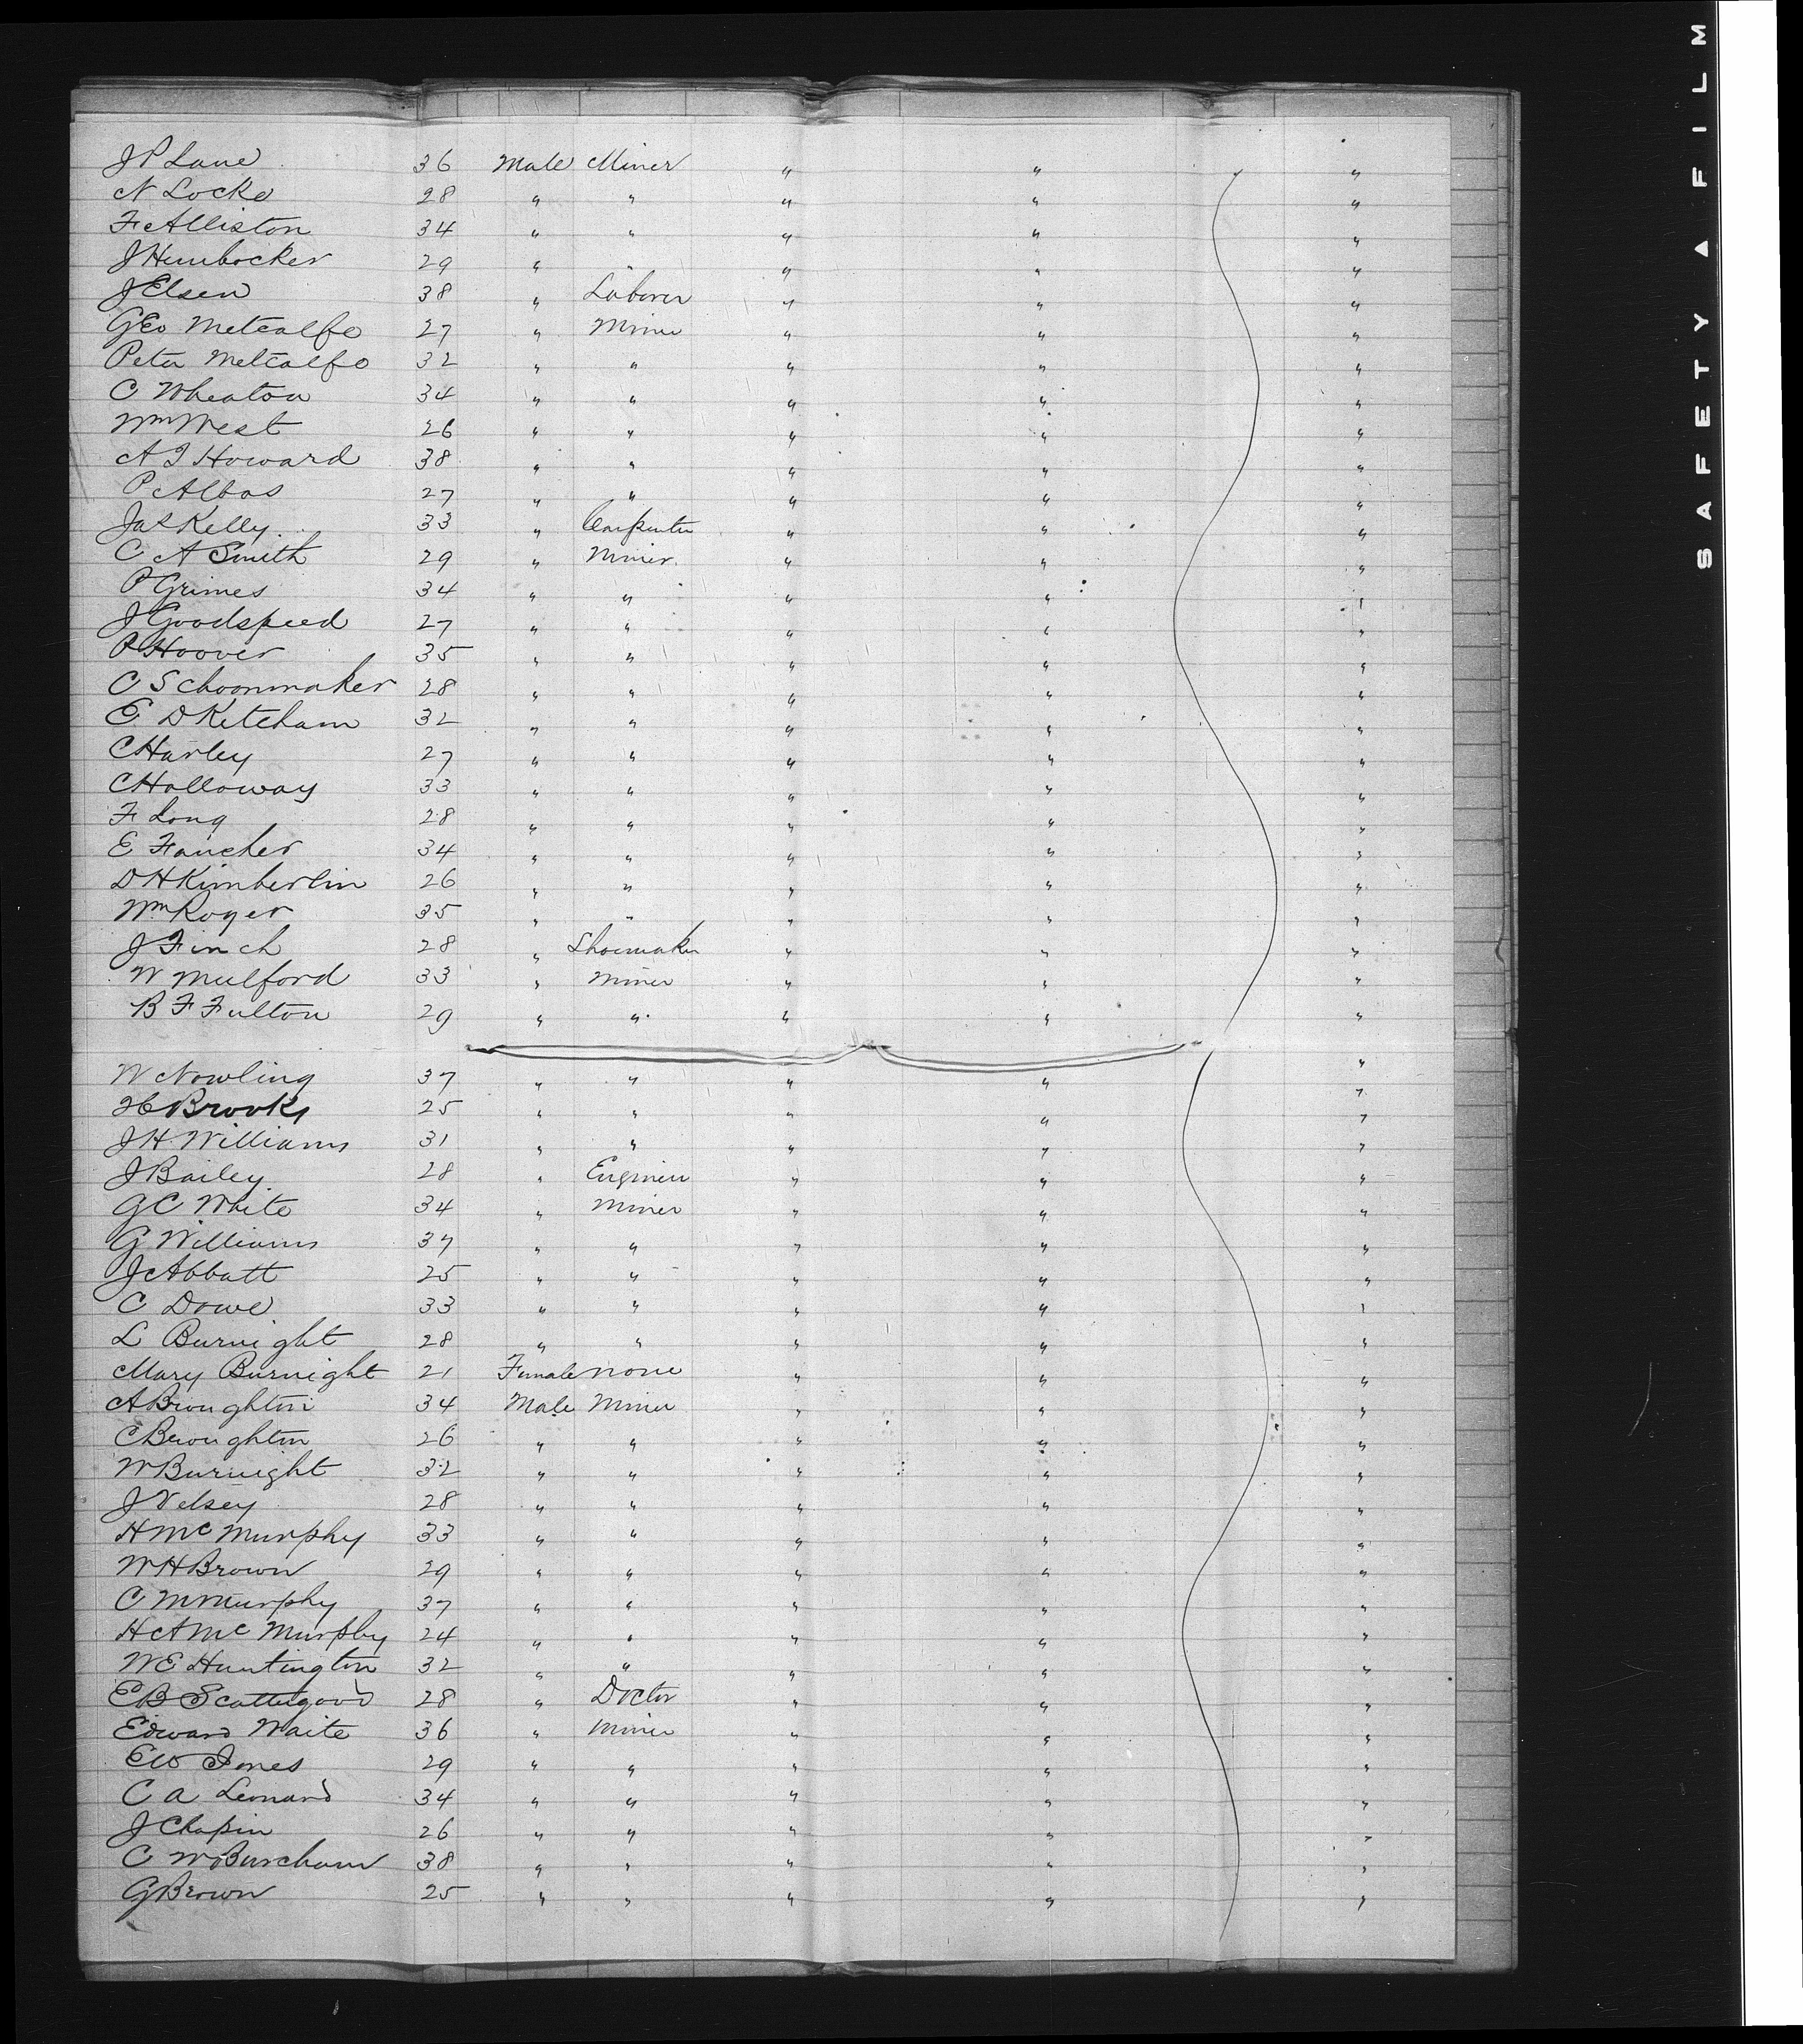 J P Lane 36 Male Miner " " "
N Locke 28 " " " " "
F Alliston 34 " " " " "
J Humbocker 29 " " " " "
J Elsen 38 " Laborer " " "
Geo Metcalfe 27 " Miner " " "
Peter Metcalfe 32 " " " " "
C Wheaton 34 " " " " "
Wm West 26 " " " " "
A J Howard 38 " " " " "
P Albas 27 " " " " "
Jas Kelly 33 " Carpenter " " "
C A Smith 29 " Miner " " "
P Grimes 34 " " " " "
J Goodspeed 27 " " " " "
P Hoover 35 " " " " "
C Schoonmaker 28 " " " " "
E D Ketcham 32 " " " " "
C Harley 27 " " " " "
C Holloway 33 " " " " "
F Long 28 " " " " "
E Fancher 34 " " " " "
D H Kimberlin 26 " " " " "
Wm Roger 35 " " " " "
J Finch 28 " Shoemaker " " "
W Mulford 33 " Miner " " "
B F Fulton 29 " " " " "
W Nowling 37 " " " " "
H Brooks 25 " " " " "
J H Williams 31 " " " " "
J Bailey 28 " Engineer " " "
G C White 34 " Miner " " "
G Williams 37 " " " " "
J Abbatt 25 " " " " "
C Dowe 33 " " " " "
L Burnight 28 " " " " "
Mary Burnight 21 Female none " " "
A Broughton 34 Male Miner " " "
C Broughton 26 " " " " "
W Burnight 32 " " " " "
J Velsey 28 " " " " "
H Mc Murphy 33 " " " " "
W H Brown 29 " " " " "
C M Murphy 37 " " " " "
H A Mc Murphy 24 " " " " "
W E Huntington 32 " " " " "
E B Scattergood 28 " Doctor " " "
Edward Waite 36 " Miner " " "
E W Jones 29 " " " " "
C A Leonard 34 " " " " "
J Chapin 26 " " " " "
C W Burcham 38 " " " " "
G Brown 25 " " " " "
SAFETY ▲ FILM